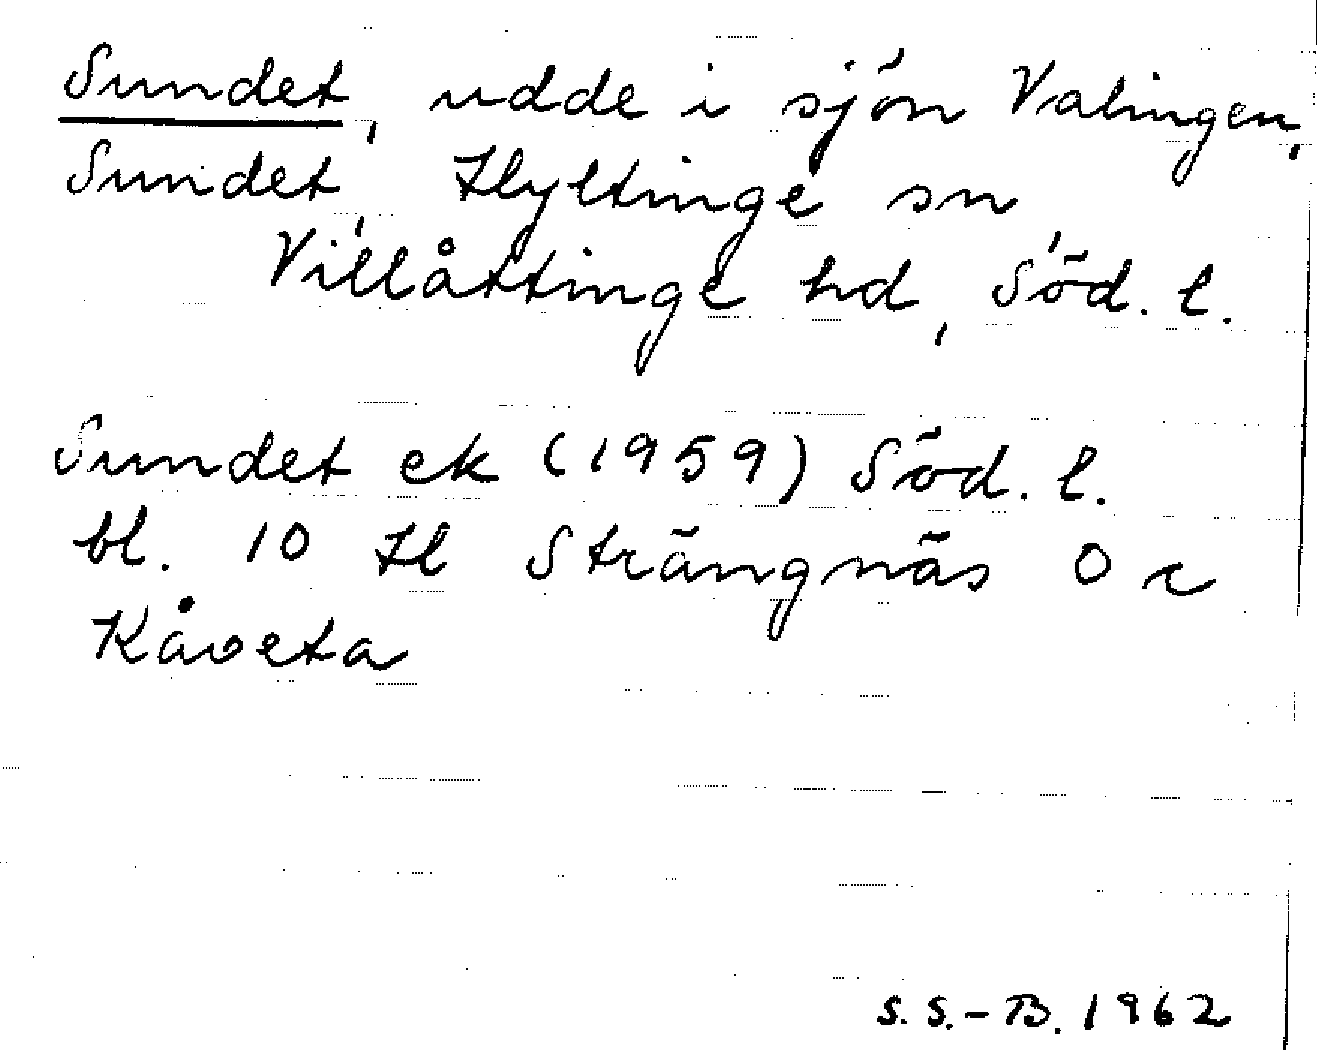 Sundet, udde i sjön Valingen,
Sundet, Hyltinge sn,
Villåttinge hd, Söd. l.
Sundet ek (1959) Söd. l.
bl. 10 H Strängnäs O c
Kåveta
S. S.-B. 1962